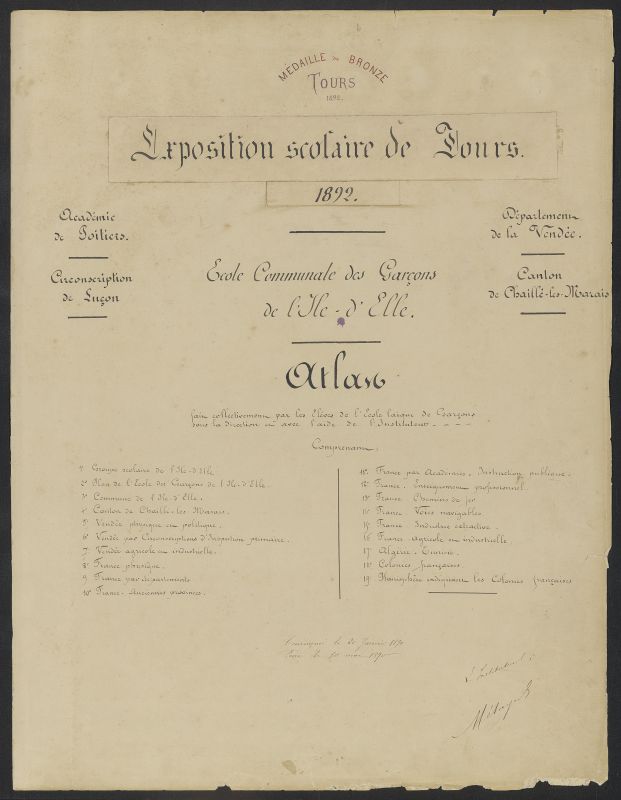 MÉDAILLE de BRONZE
TOURS
1892.
Exposition scolaire de Tours.
1892.
Académie
de Poitiers.
Circonscription
de Luçon
Département
de la Vendée.
Canton
de Chaillé-les-Marais
Ecole Communale des Garçons
de l'Ile-d'Elle.
Atlas
fait collectivement par les Elèves de l'Ecole laïque de Garçons
sous la direction et avec l'aide de l'Instituteur
Comprenant:
1º Groupe scolaire de l'Ile-d'Elle.
2º Plan de l'Ecole des Garçons de l'Ile-d'Elle.
3º Commune de l'Ile-d'Elle.
4º Canton de Chaillé-les-Marais.
5º Vendée physique et politique.
6º Vendée par Circonscriptions d'Inspection primaire.
7º Vendée agricole et industrielle.
8º France physique.
9º France par départements
10º France-Anciennes provinces.
11º France par Académies. Instruction publique.
12º France. Enseignement professionnel.
13º France Chemins de fer
14º France Voies navigables
15º France Industrie extractive.
16º France Agricole et industrielle
17º Algérie-Tunisie.
18º Colonies françaises.
19º Planisphère indiquant les Colonies françaises
le 20 Janvier 1890
le 10 mai 1890
L'Instituteur